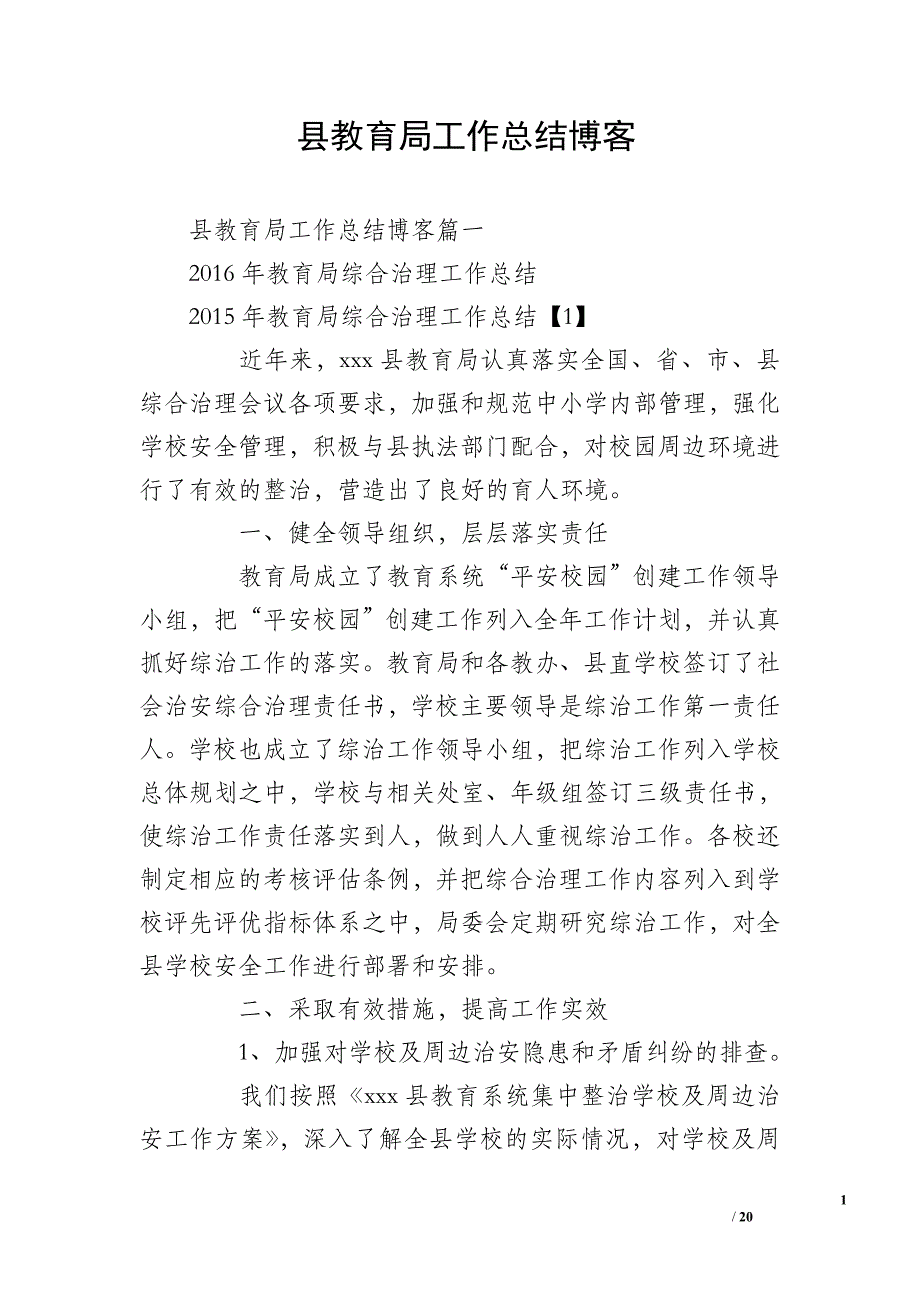 县教育局工作总结博客
县教育局工作总结博客篇一
2016 年教育局综合治理工作总结
2015 年教育局综合治理工作总结【1】
近年来，xxx 县教育局认真落实全国、省、市、县
综合治理会议各项要求，加强和规范中小学内部管理，强化
学校安全管理，积极与县执法部门配合，对校园周边环境进
行了有效的整治，营造出了良好的育人环境。
一、健全领导组织，层层落实责任
教育局成立了教育系统“平安校园”创建工作领导
小组，把“平安校园”创建工作列入全年工作计划，并认真
抓好综治工作的落实。教育局和各教办、县直学校签订了社
会治安综合治理责任书，学校主要领导是综治工作第一责任
人。学校也成立了综治工作领导小组，把综治工作列入学校
总体规划之中，学校与相关处室、年级组签订三级责任书，
使综治工作责任落实到人，做到人人重视综治工作。各校还
制定相应的考核评估条例，并把综合治理工作内容列入到学
校评先评优指标体系之中，局委会定期研究综治工作，对全
县学校安全工作进行部署和安排。
二、采取有效措施，提高工作实效
1、加强对学校及周边治安隐患和矛盾纠纷的排查。
我们按照《xxx 县教育系统集中整治学校及周边治
安工作方案》，深入了解全县学校的实际情况，对学校及周
1
/ 20